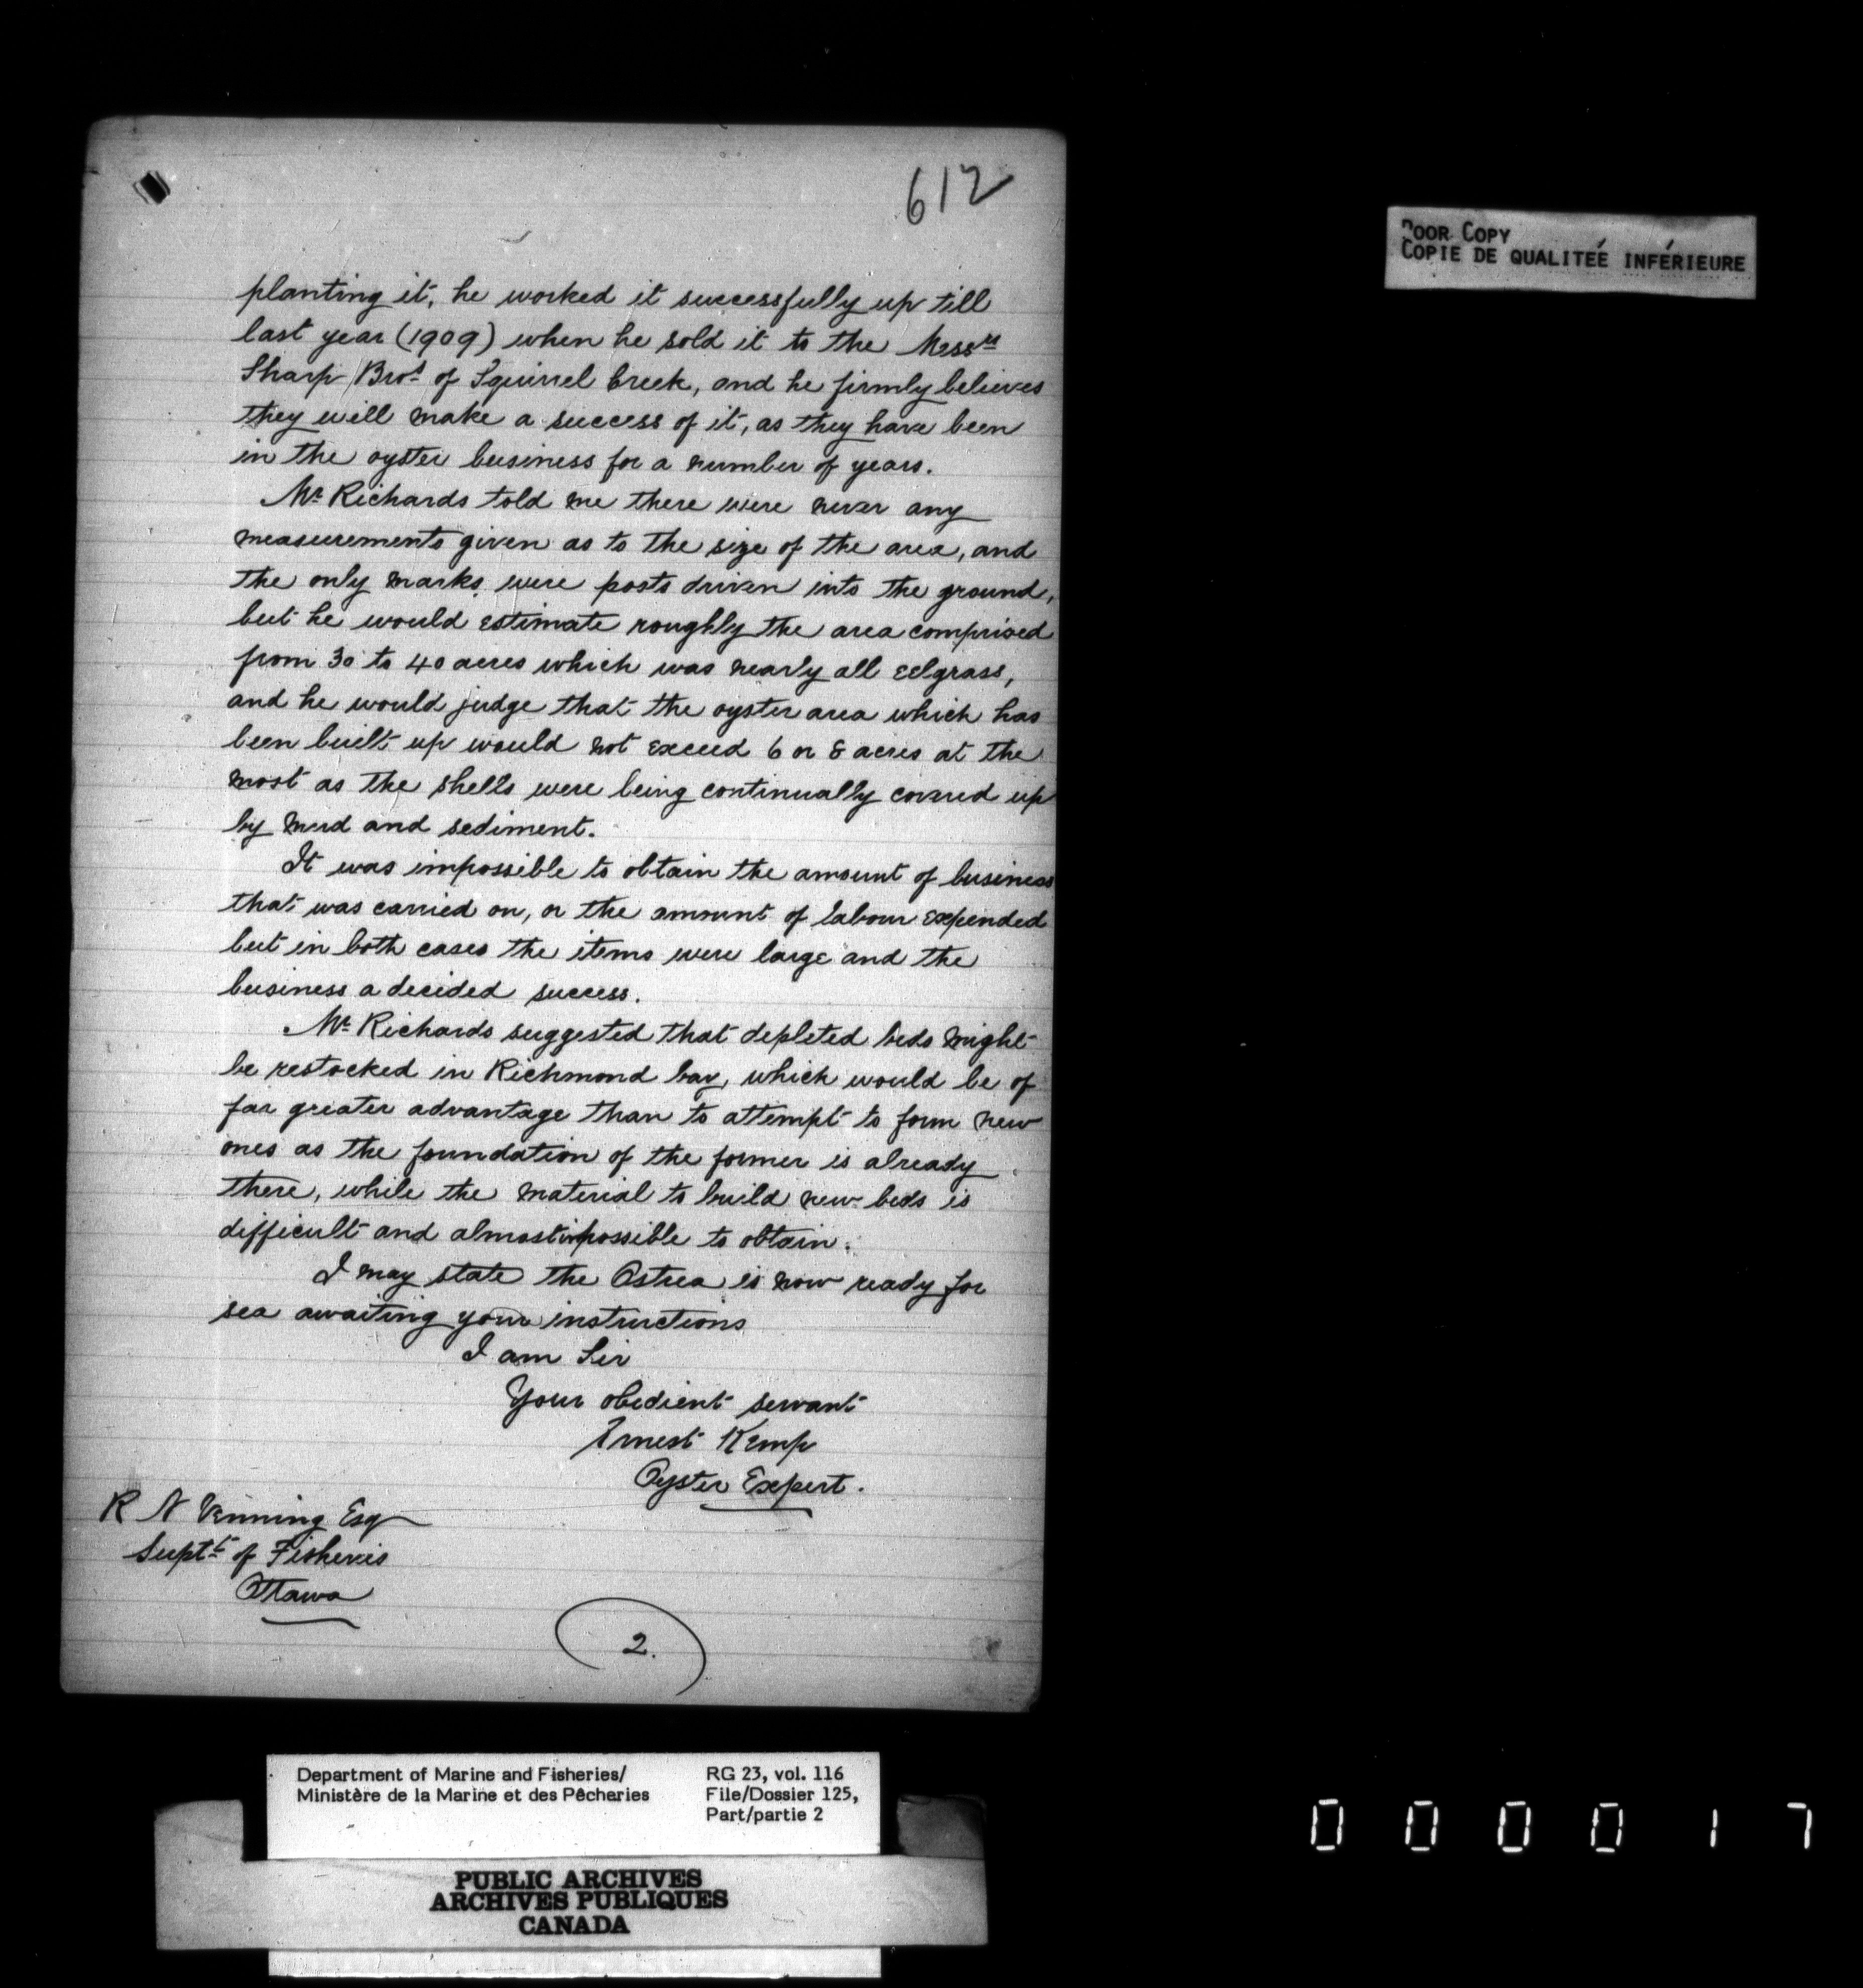 612
POOR COPY
COPIE DE QUALITEÉ INFÉRIEURE
planting it, he worked it successfully up till
last year (1909) when he sold it to the Messrs
Sharp Bros of Squirrel Creek, and he firmly believes
they will make a success of it, as they have been
in the oyster business for a number of years.
Mr Richards told me there were never any
measurements given as to the size of the area, and
the only marks were posts driven into the ground,
but he would estimate roughly the area comprised
from 30 to 40 acres which was nearly all eelgrass,
and he would judge that the oyster area which has
been built up would not exceed 6 or 8 acres at the
most as the shells were being continually covered up
by mud and sediment.
It was impossible to obtain the amount of business
that was carried on, or the amount of labour expended
but in both cases the items were large and the
business a decided success.
Mr Richards suggested that depleted beds might
be restocked in Richmond bay, which would be of
far greater advantage than to attempt to form new
ones as the foundation of the former is already
there, while the material to build new beds is
difficult and almost impossible to obtain.
I may state the Ostrea is now ready for
sea awaiting your instructions
I am Sir
Your obedient servant
Ernest Kemp
Oyster Expert.
R N Venning Esq
Suptt of Fisheries
Ottawa
2.
Department of Marine and Fisheries/
Ministère de la Marine et des Pêcharies
RG 23, vol. 116
File/Dossier 125,
Part/partie 2
PUBLIC ARCHIVES
ARCHIVES PUBLIQUES
CANADA
000017